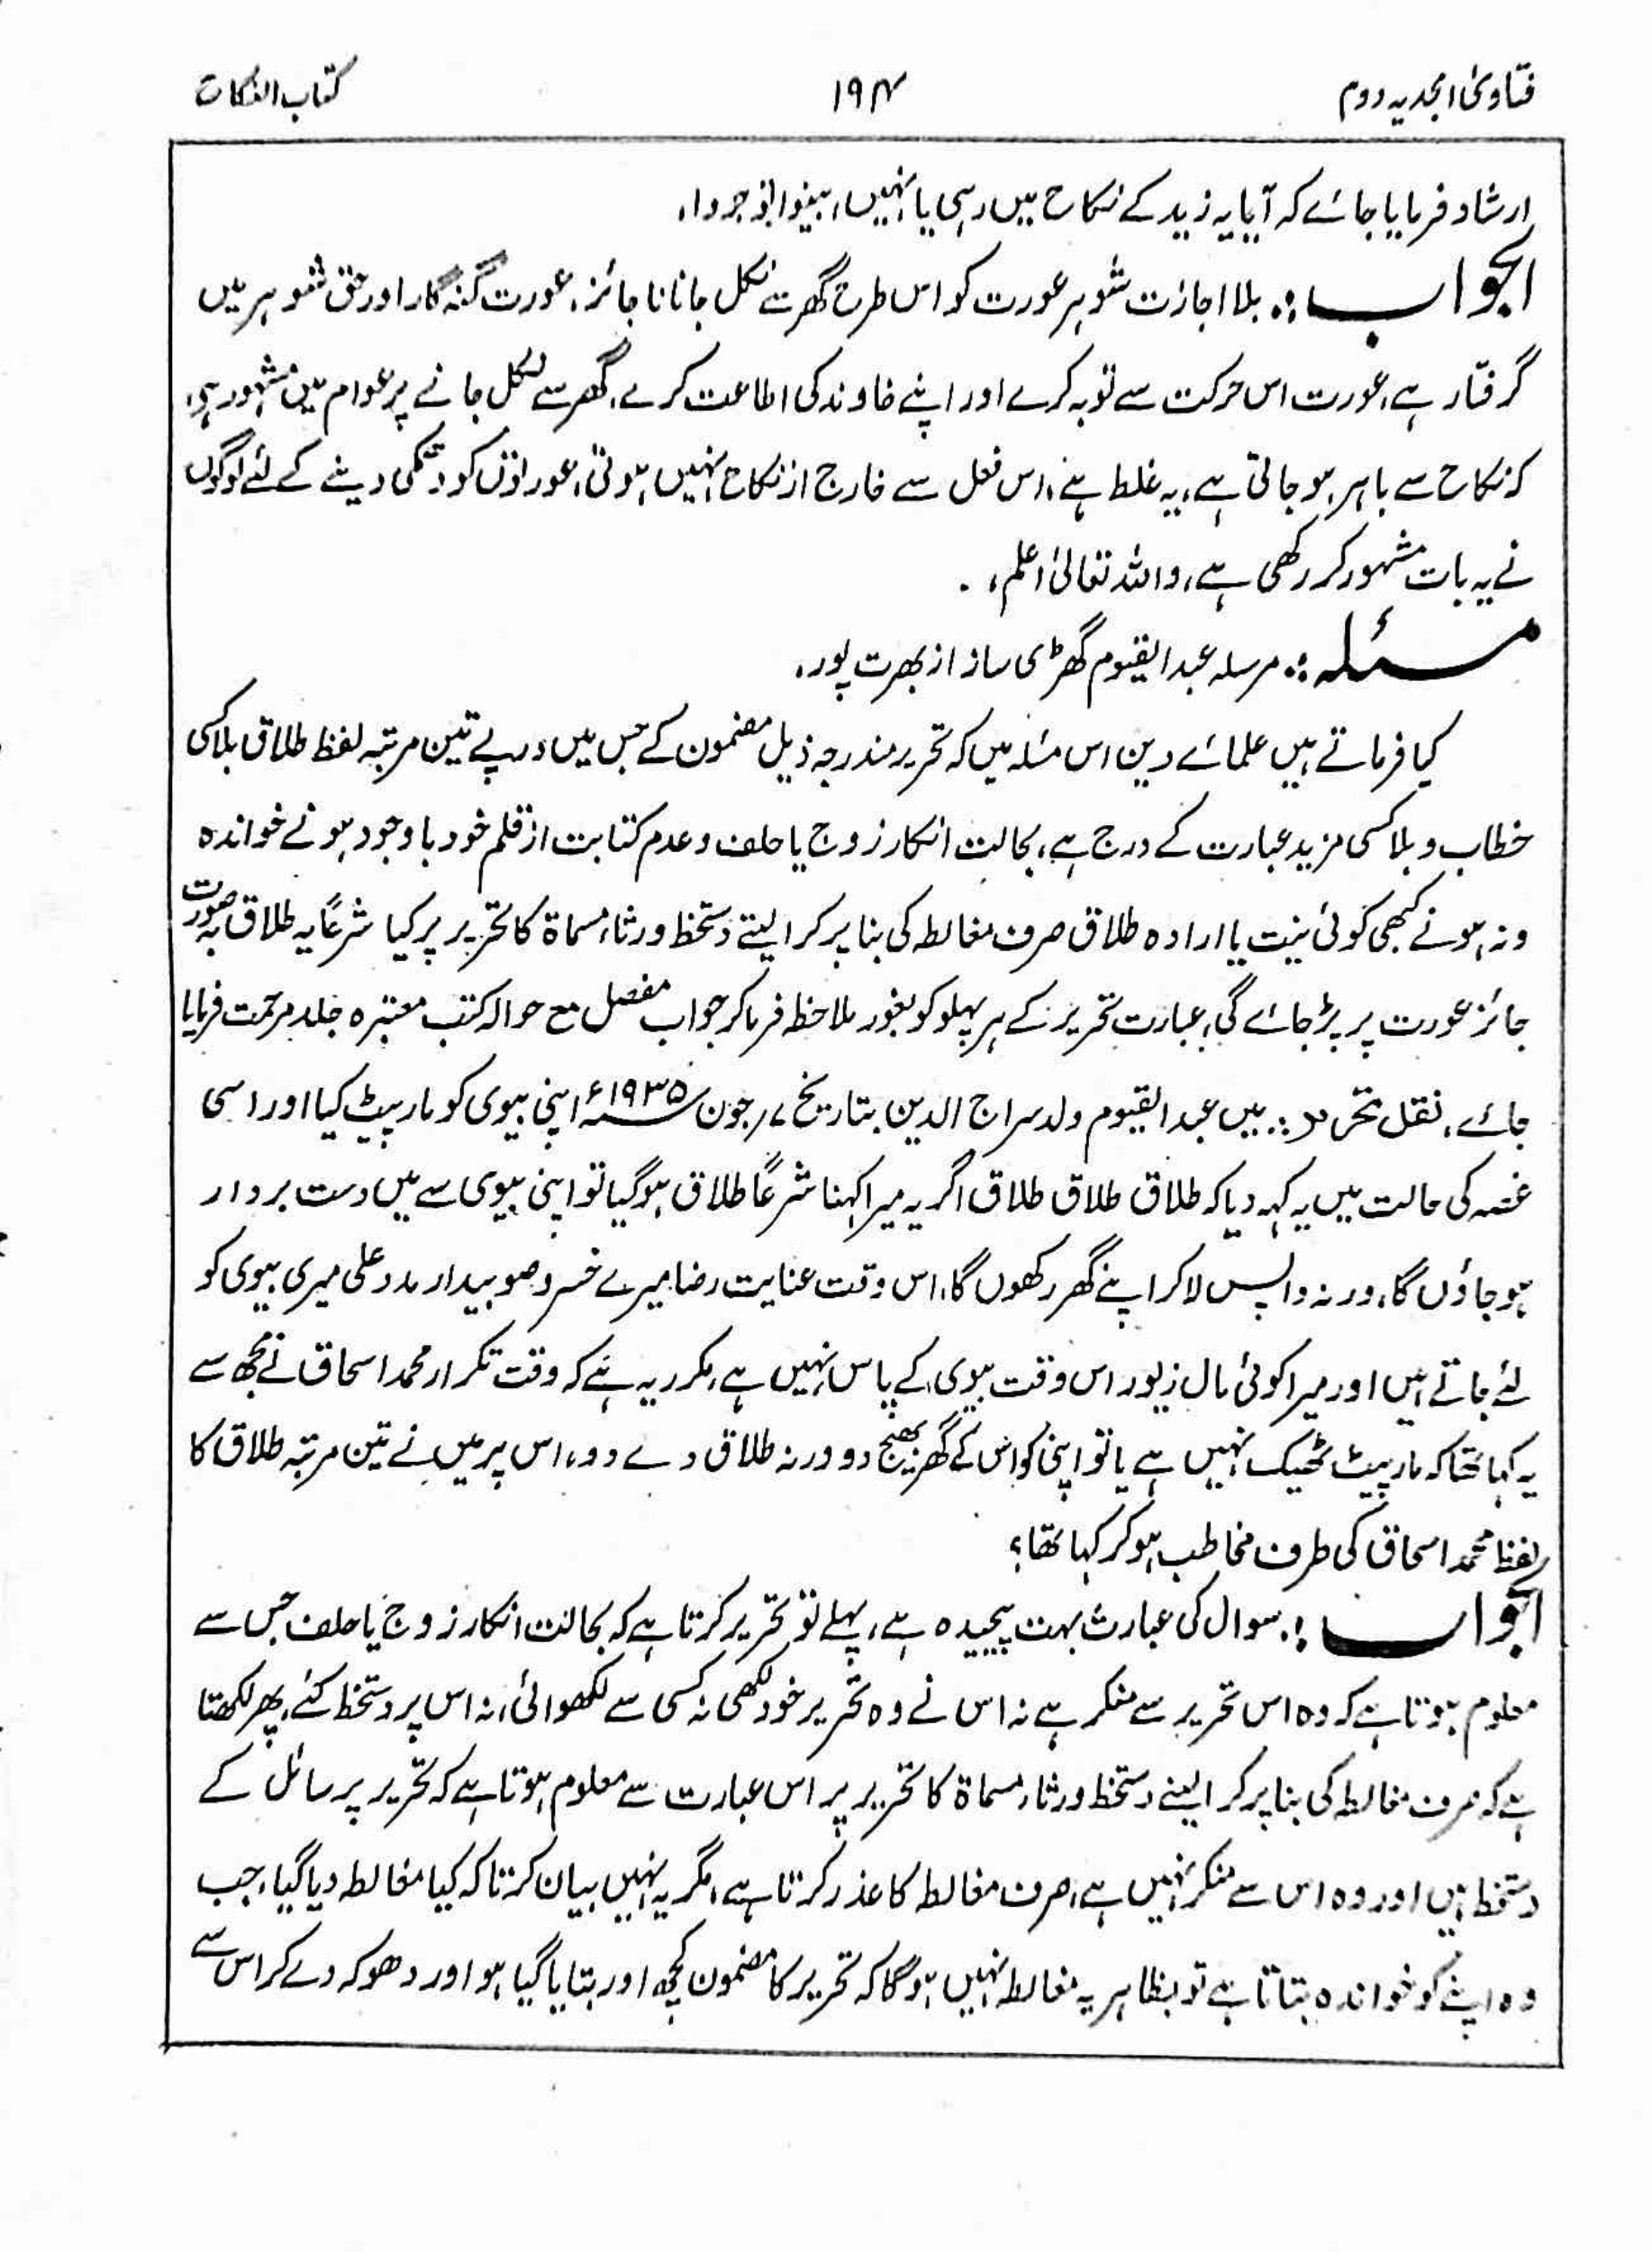 فتاویٰ امجدیہ دوم ۱۹۴ کتاب النکاح
ارشاد فرمایا جائے کہ آیا یہ زید کے نکاح میں رہی یا نہیں، بینوا توجروا،
الجواب :: بلا اجازت شوہر عورت کو اس طرح گھر سے نکل جانا ناجائز، عورت گنہگار اور حق شوہر میں
گرفتار ہے، عورت اس حرکت سے توبہ کرے اور اپنے خاوند کی اطاعت کرے، گھر سے نکل جانے پر عوام میں مشہور ہے،
کہ نکاح سے باہر ہو جاتی ہے، یہ غلط ہے، اس فعل سے خارج از نکاح نہیں ہوتی، عورتوں کو دھمکی دینے کے لئے لوگوں
نے یہ بات مشہور کر رکھی ہے، واللہ تعالیٰ اعلم،
مسئلہ :: مرسلہ عبدالقیوم گھڑی ساز از بھرت پور،
کیا فرماتے ہیں علمائے دین اس مسئلہ میں کہ تحریر مندرجہ ذیل مضمون کے جس میں درپے تین مرتبہ لفظ طلاق بلا کسی
خطاب و بلا کسی مزید عبارت کے درج ہے، بحالت انکار زوج یا حلف و عدم کتابت از قلم خود باوجود ہونے خواندہ
و نہ ہونے کبھی کوئی نیت یا ارادہ طلاق صرف مغالطہ کی بنا پر کرا لینے دستخط ورثاء مسماۃ کا تحریر پر کیا شرعًا یہ طلاق بہ صورت
جائز عورت پر پڑ جائے گی، عبارت تحریر کے ہر پہلو کو بغور ملاحظہ فرما کر جواب مفصل مع حوالہ کتب معتبرہ جلد مرحمت فرمایا
جائے، نقل تحریر :: میں عبدالقیوم ولد سراج الدین بتاریخ ۷؍ جون ۱۹۳۵ء اپنی بیوی کو مار پیٹ کیا اور اسی
غصہ کی حالت میں یہ کہہ دیا کہ طلاق طلاق طلاق اگر یہ میرا کہنا شرعًا طلاق ہو گیا تو اپنی بیوی سے میں دست بردار
ہو جاؤں گا، ورنہ واپس لا کر اپنے گھر رکھوں گا، اس وقت عنایت رضا میرے خسر و صوبیدار مدد علی میری بیوی کو
لئے جاتے ہیں اور میرا کوئی مال زیور اس وقت بیوی کے پاس نہیں ہے، مکرر یہ ہے کہ وقت تکرار محمد اسحاق نے مجھ سے
یہ کہا تھا کہ مار پیٹ ٹھیک نہیں ہے یا تو اپنی کو اس کے گھر بھیج دو ورنہ طلاق دے دو، اس پر میں نے تین مرتبہ طلاق کا
لفظ محمد اسحاق کی طرف مخاطب ہو کر کہا تھا؟
الجواب :: سوال کی عبارت بہت پیچیدہ ہے، پہلے تو تحریر کرتا ہے کہ بحالت انکار زوج یا حلف جس سے
معلوم ہوتا ہے کہ وہ اس تحریر سے منکر ہے نہ اس نے وہ تحریر خود لکھی نہ کسی سے لکھوائی، نہ اس پر دستخط کئے، پھر لکھتا
ہے کہ صرف مغالطہ کی بنا پر کرا لینے دستخط ورثاء مسماۃ کا تحریر پر اس عبارت سے معلوم ہوتا ہے کہ تحریر پر سائل کے
دستخط ہیں اور وہ اس سے منکر نہیں ہے، صرف مغالطہ کا عذر کرتا ہے، مگر یہ نہیں بیان کرتا کہ کیا مغالطہ دیا گیا، جب
وہ اپنے کو خواندہ بتاتا ہے تو بظاہر یہ مغالطہ نہیں ہوگا کہ تحریر کا مضمون کچھ اور بتایا گیا ہو اور دھوکہ دے کر اس سے